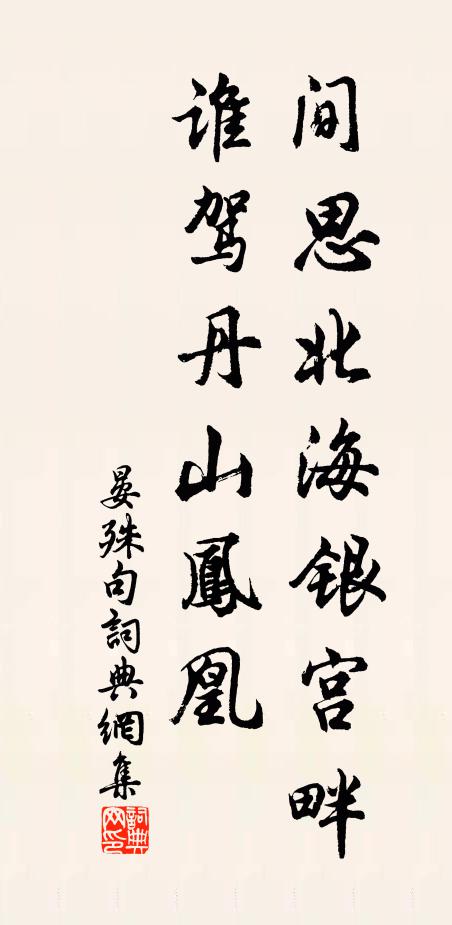 间思北海银宫畔
谁驾丹山鳳凰
晏殊句詞典網集
詞典网印